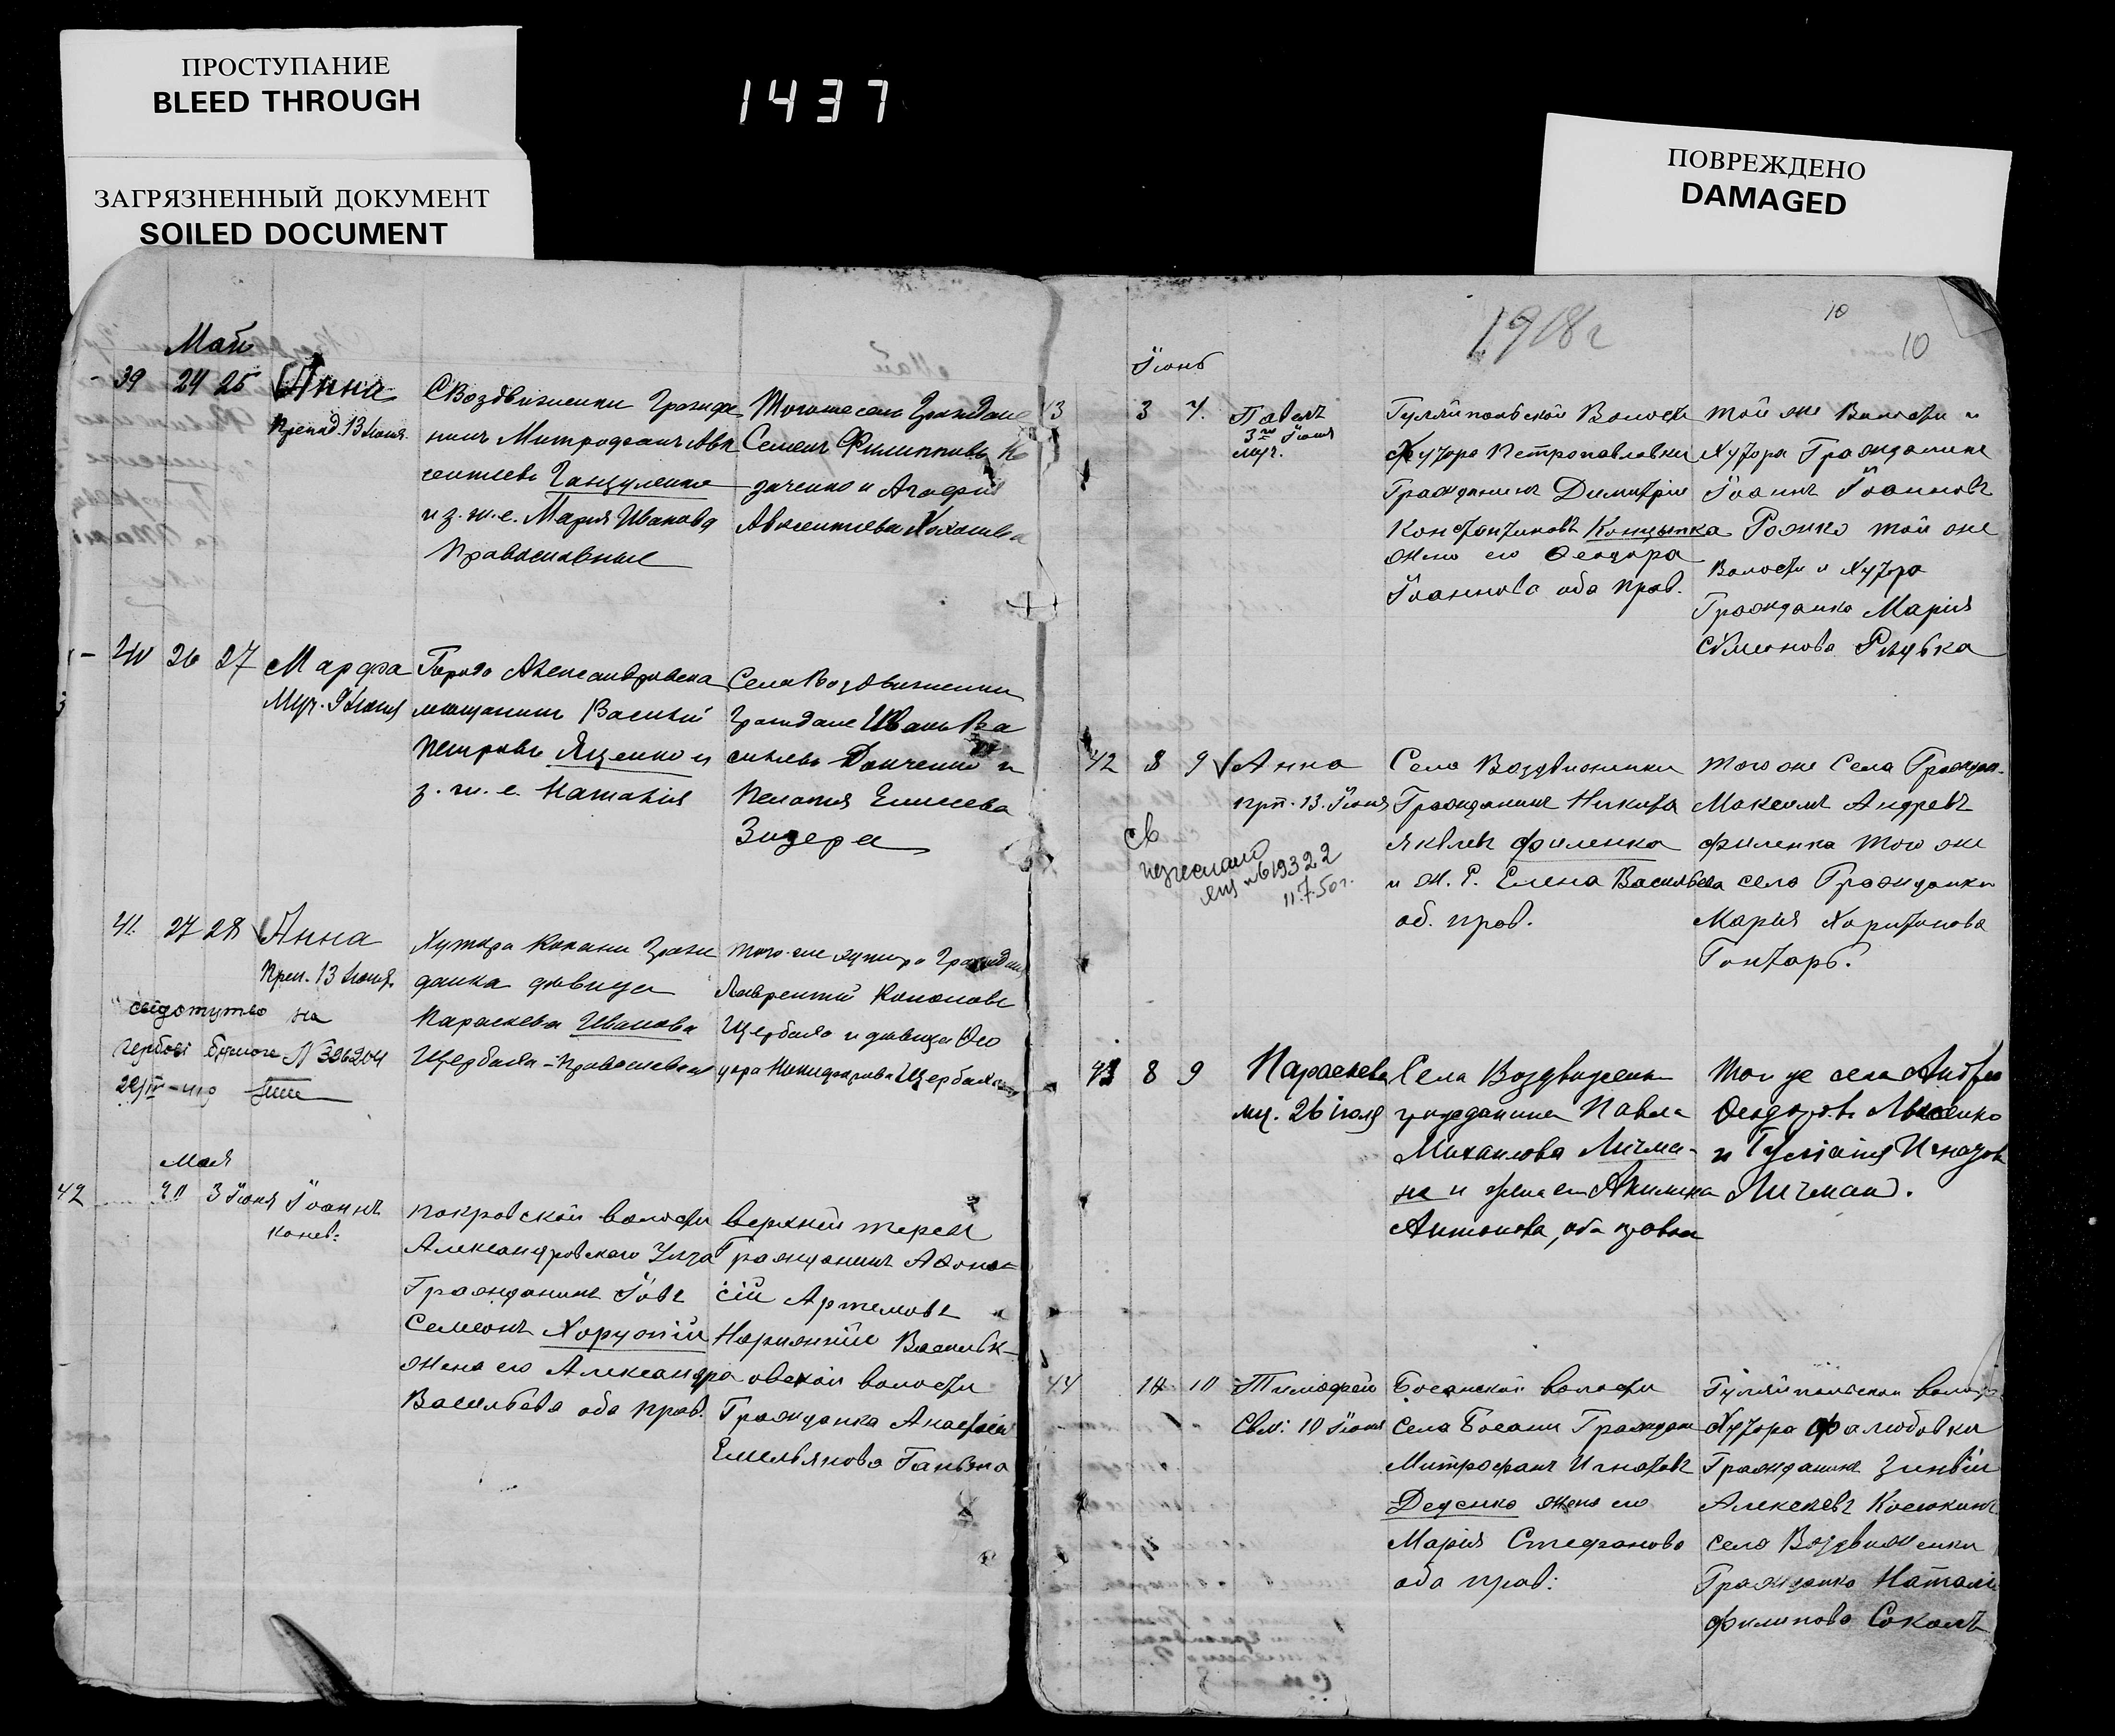 ПРОСТУПАНИЕ
BLEED THROUGH
ЗАГРЯЗНЕННЫЙ ДОКУМЕНТ
SOILED DOCUMENT
1437
ПОВРЕЖДЕНО
DAMAGED
Май
39 24 25 Анна
13 Июня
С Воздвиженки Гражда
нинъ Митрофанъ Авк
сентиевъ Ганзуленко
и з. ж. е. Мария Иванова
Православные
Тогоже села Граждане
Семенъ Филипповъ
и Агафия
Авксентиева
40 26 27 Марфа
Муч. 9 Июня
Города Александровска
мещанинъ Василий
Петровъ Яценко и
з. ж. е. Наталия
Села Воздвиженки
граждане Иванъ Ва
сильевъ Донченко и
Пелагия Елисеева
41. 27 28 Анна
Преп. 13 Июня
Хутора Копани Граж
данка девица
Параскева Иванова
Щербака - Православная
того-же хутора Граждан
Лаврентий Кононовъ
Щербако и девица Фео
дора Никифорова Щербака
свідотутво на
гербові бумаге N 326204
Мая
42 30 3 Іюня Іоаннъ
покровской волости
Александровскаго Уезда
Гражданинъ Іовъ
Семеонъ Хорунжій
жена его Александра
Васильева оба прав.
верхней терсы
Гражданинъ Афона-
сій Артемовъ
Нарижній Васильк-
овской волости
Гражданка Анастасія
Емельянова
1918 г
10
10
Іюнь
43 3 7. Павелъ
3го Іюня
муч.
Гуляйпольской Волости
Хутора Петропавловки
Гражданинъ Димитрій
Константиновъ Концыпка
жена его Феодора
Іоаннова оба прав.
той же Волости и
Хутора Гражданинъ
Іоаннъ Іоанновъ
Рожко той же
Волости и Хутора
Гражданка Марія
Симеонова
42 8 9 Анна
прп. 13. Іюня
Села Воздвиженки
Гражданинъ Никита
Яквлевъ Филенко
и ж. е. Елена Васильева
об. прав.
того же Села Граждан.
Максимъ Андревъ
Филенко того же
села Гражданки
Марія Харитонова
Гонтарь.
Св
№ 619322
11.7.50 г.
43 8 9 Параскева
мц. 26 іюля
Села Воздвиженки
гражданина Павла
Михаилова Личма-
на и жена его Акилина
Антонова, оба правосл
Того же села Андрей
Феодоровъ Лысенко
и Гулианія Игнатов
Личман.
44 10 Тимофей
10 Іюня
Босанской волости
села Босани Граждан
Митрофанъ Игнатовъ
Деденко жена его
Марія Стефанова
оба прав:
Гуляйпольской волости
Хутора Фалюбовки
Гражданинъ Зиновій
Алексеевъ Косюкинъ
села Воздвиженки
Гражданка Наталі
Филипова Соколъ